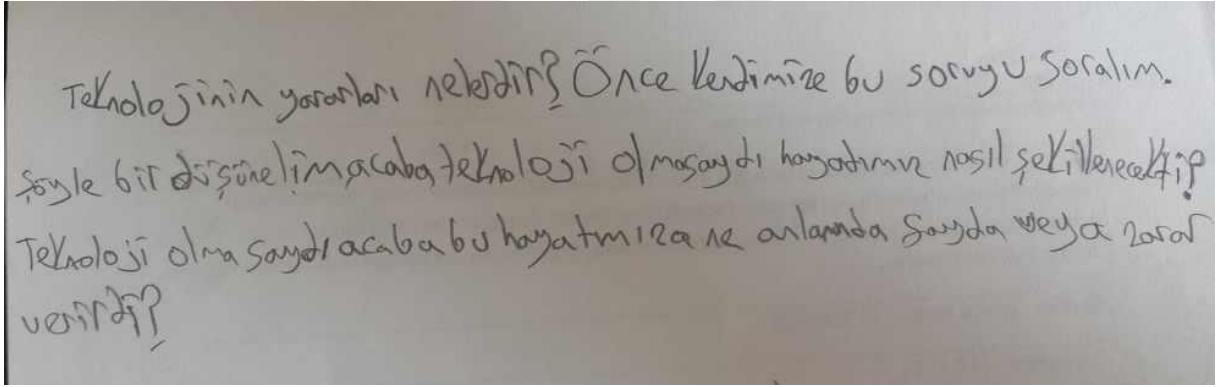 Teknolojinin yararları nelerdir? Önce kendimize bu soruyu soralım.
şöyle bir düşünelim acaba teknoloji olmasaydı hayatımız nasıl şekillenecekti?
Teknoloji olmasaydı acaba bu hayatmıza ne anlamda fayda veya zarar
verirdi?